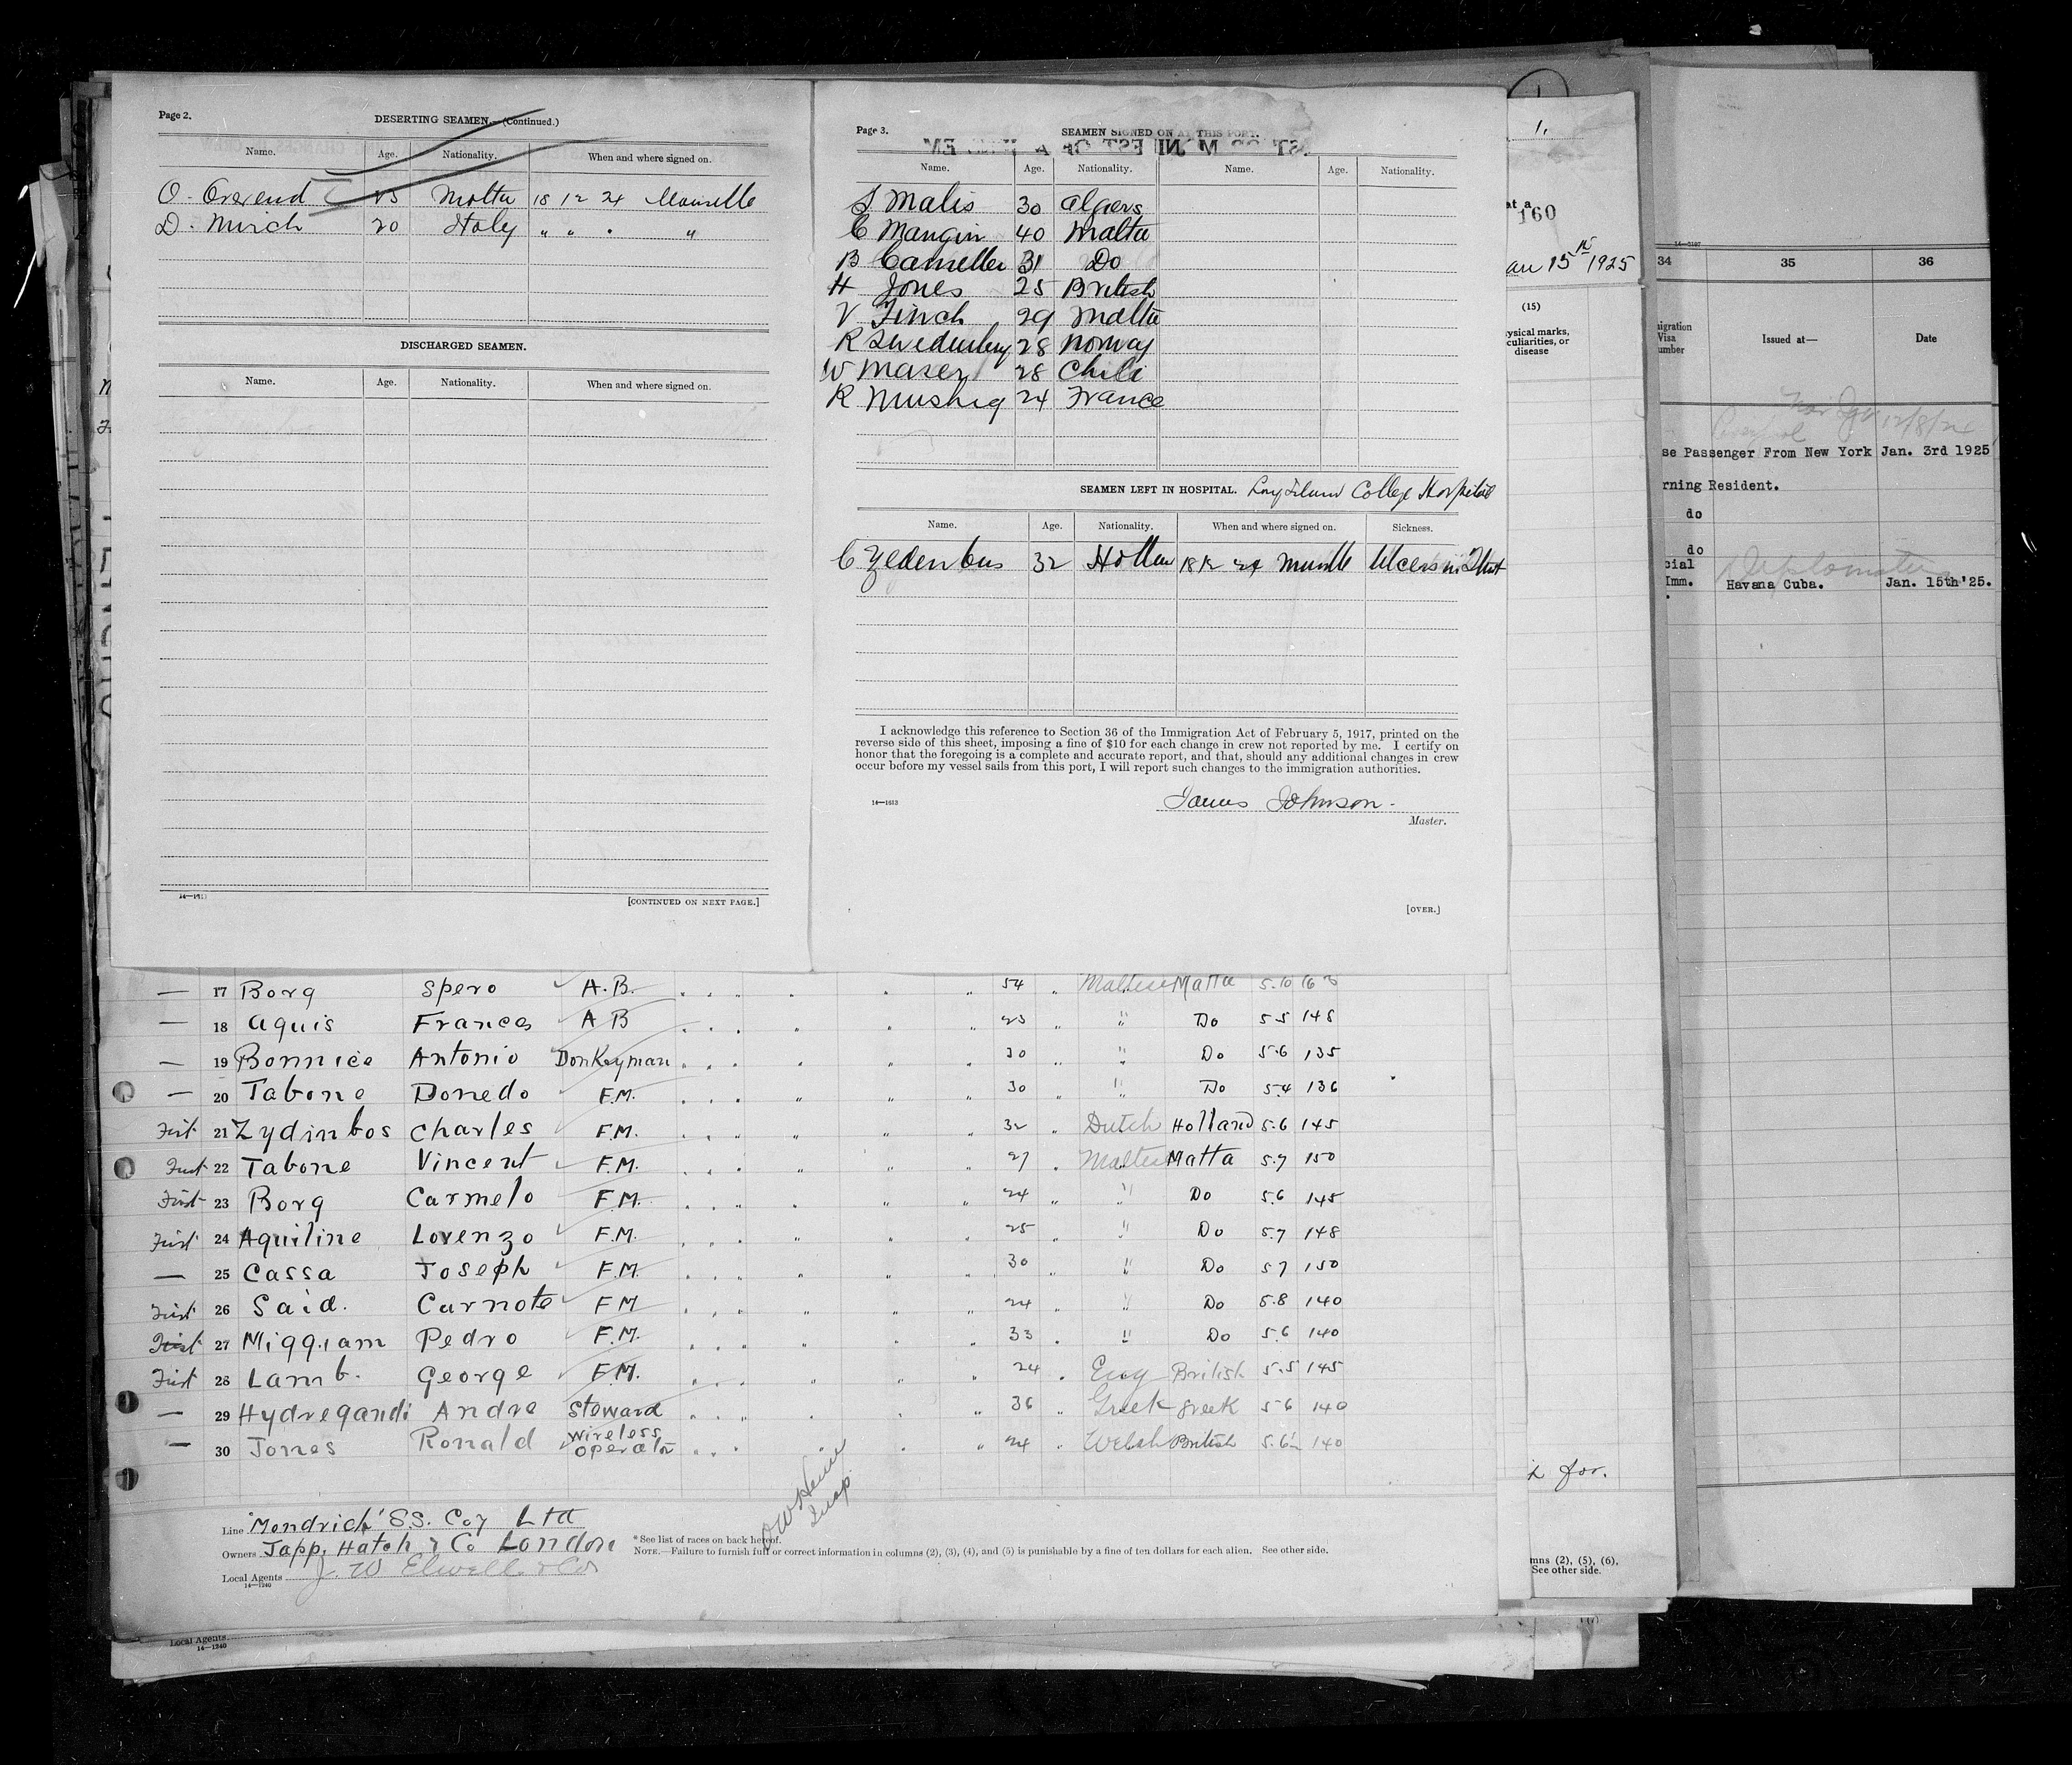 Page 2.
DESERTING SEAMEN.—(Continued.)
Name. Age. Nationality. When and where signed on.
O. Overend 25 Malta 18 12 24 Marseille
D. Mirich 20 Italy " " " "
DISCHARGED SEAMEN.
Name. Age. Nationality. When and where signed on.
[CONTINUED ON NEXT PAGE.]
Page 3.
SEAMEN SIGNED ON AT THIS PORT.
Name. Age. Nationality. Name. Age. Nationality.
S Malis 30 Algers
C Mangin 40 Malta
B Camelleri 31 Do
H Jones 25 British
V Finch 29 Malta
R Swedenberg 28 Norway
W Maser 28 Chili
R 24 France
SEAMEN LEFT IN HOSPITAL. Long Island College Hospital
Name. Age. Nationality. When and where signed on. Sickness.
C Zydenbus 32 Holland 18 12 24 Ulcers in
I acknowledge this reference to Section 36 of the Immigration Act of February 5, 1917, printed on the
reverse side of this sheet, imposing a fine of $10 for each change in crew not reported by me. I certify on
honor that the foregoing is a complete and accurate report, and that, should any additional changes in crew
occur before my vessel sails from this port, I will report such changes to the immigration authorities.
14—1613
James Johnson.
Master.
[OVER.]
1.
at a
160
Jan 15th 1925
(15)
ysical marks,
culiarities, or
disease
14—3107
34 35 36
nigration
Visa
umber
Issued at—
Date
12/8/24
se Passenger From New York Jan. 3rd 1925
rning Resident.
do
do
cial
Imm.
Diplomatic
Havana Cuba. Jan. 15th'25.
— 17 Borg Spero A.B. 54 Maltese Malta 5.10 163
— 18 Aquis Frances A B 23 " Do 5 5 148
— 19 Bonnice Antonio Donkeyman 30 " Do 5.6 135
— 20 Tabone Donedo F.M. 30 " Do 5.4 136
First 21 Zydinbos Charles F.M. 32 " Dutch Holland 5.6 145
First 22 Tabone Vincent F.M. 27 Maltese Malta 5.7 150
First 23 Borg Carmelo F.M. 24 " " Do 5.6 145
First 24 Aquiline Lorenzo F.M. 25 " " Do 5.7 148
— 25 Cassa Joseph F.M. 30 " " Do 5 7 150
First 26 Said. Carnote F.M 24 " " Do 5.8 140
First 27 Miggiam Pedro F.M. 33 " Do 5.6 140
First 28 Lamb. George F.M. 24 Eng British 5.5 145
— 29 Hydregandi Andre Steward 36 " Greek Greek 5 6 140
— 30 Jones Ronald Wireless operator 24 " Welsh British 5.6½ 140
Line "Mendrich' S.S. Coy Ltd
Owners Japp, Hatch & Co London
Local Agents J. W Elwell & Co
14—1240
*See list of races on back hereof.
NOTE.—Failure to furnish full or correct information in columns (2), (3), (4), and (5) is punishable by a fine of ten dollars for each alien. See other side.
for.
mns (2), (5), (6),
See other side.
Local Agents
14—1240